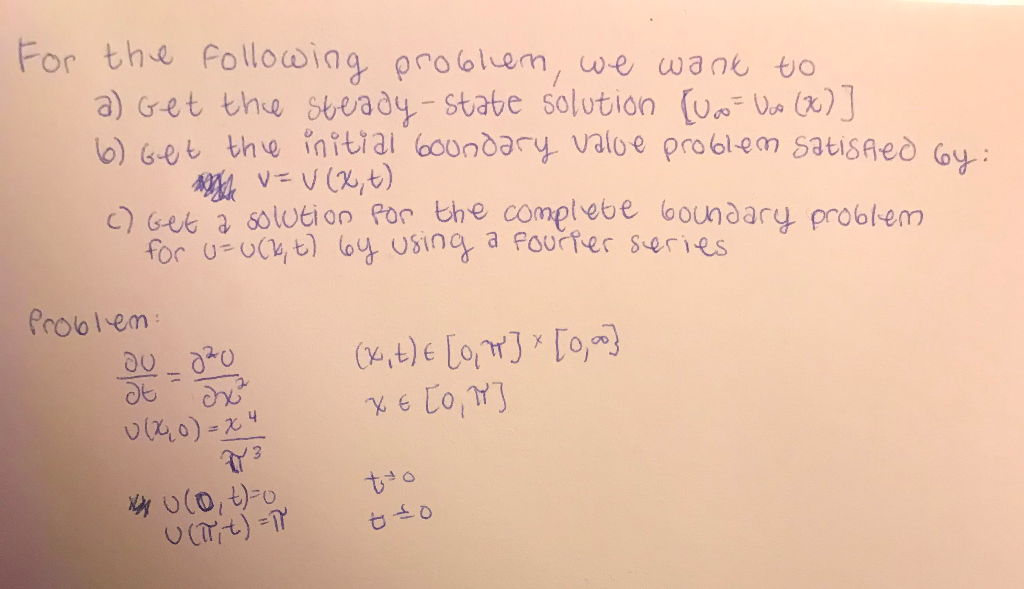 For the following problem, we want to
a) Get the steady-state solution [U∞ = U∞ (x)]
b) Get the initial boundary value problem satisfied by:
v = v(x,t)
c) Get a solution for the complete boundary problem
for u=u(x,t) by using a fourier series
Problem:
∂u/∂t = ∂²u/∂x² (x,t) ∈ [0,π] × [0,∞}
u(x,0) = x⁴/π³ x ∈ [0,π]
u(0,t)=0
u(π,t)=π